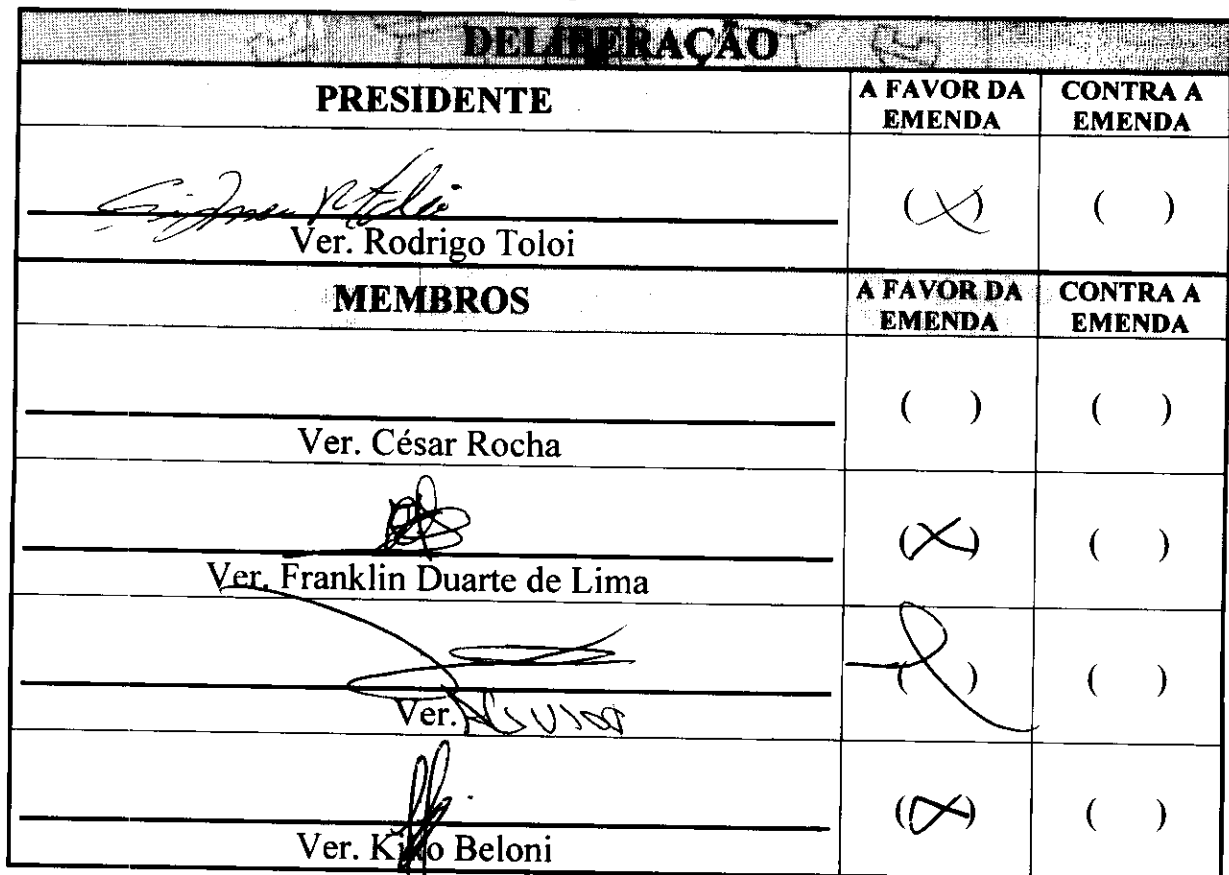 DELIBERAÇÃO
PRESIDENTE
A FAVOR DA EMENDA
CONTRA A EMENDA
(X)
( )
Ver. Rodrigo Toloi
MEMBROS
A FAVOR DA EMENDA
CONTRA A EMENDA
( )
( )
Ver. César Rocha
(X)
( )
Ver. Franklin Duarte de Lima
( )
( )
Ver.
(X)
( )
Ver. Beloni